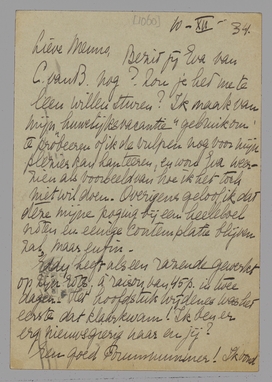 (1030)
10-XII-34.
Lieve Menno, Bezit jij Eva van
C. van B. nog? Zou je het me te
leen willen sturen? Ik maak van
mijn "huwelijksvacantie" gebruik om
te probeeren of ik de vulpen nog voor mijn
plezier kan hanteeren, en word Eva her-
zien als voorbeeld van hoe ik het toch
niet wil doen. Overigens geloof ik dat
deze mijne poging bij een heeleboel
noten en eenige contemplatie blijven
zal, maar enfin.
Eddy heeft als een razende gewerkt
op zijn à raison van 45 p. in twee
dagen. Het hoofdstuk was het
eerste dat klaar kwam. Ik ben er
erg nieuwsgierig naar en jij?
Een goed Forumnummer! Ik vond